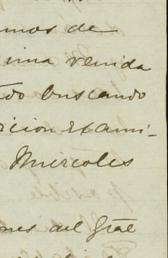 mos de
ima venida
do buscando
icion Exami-
Miercoles
nes del Gral